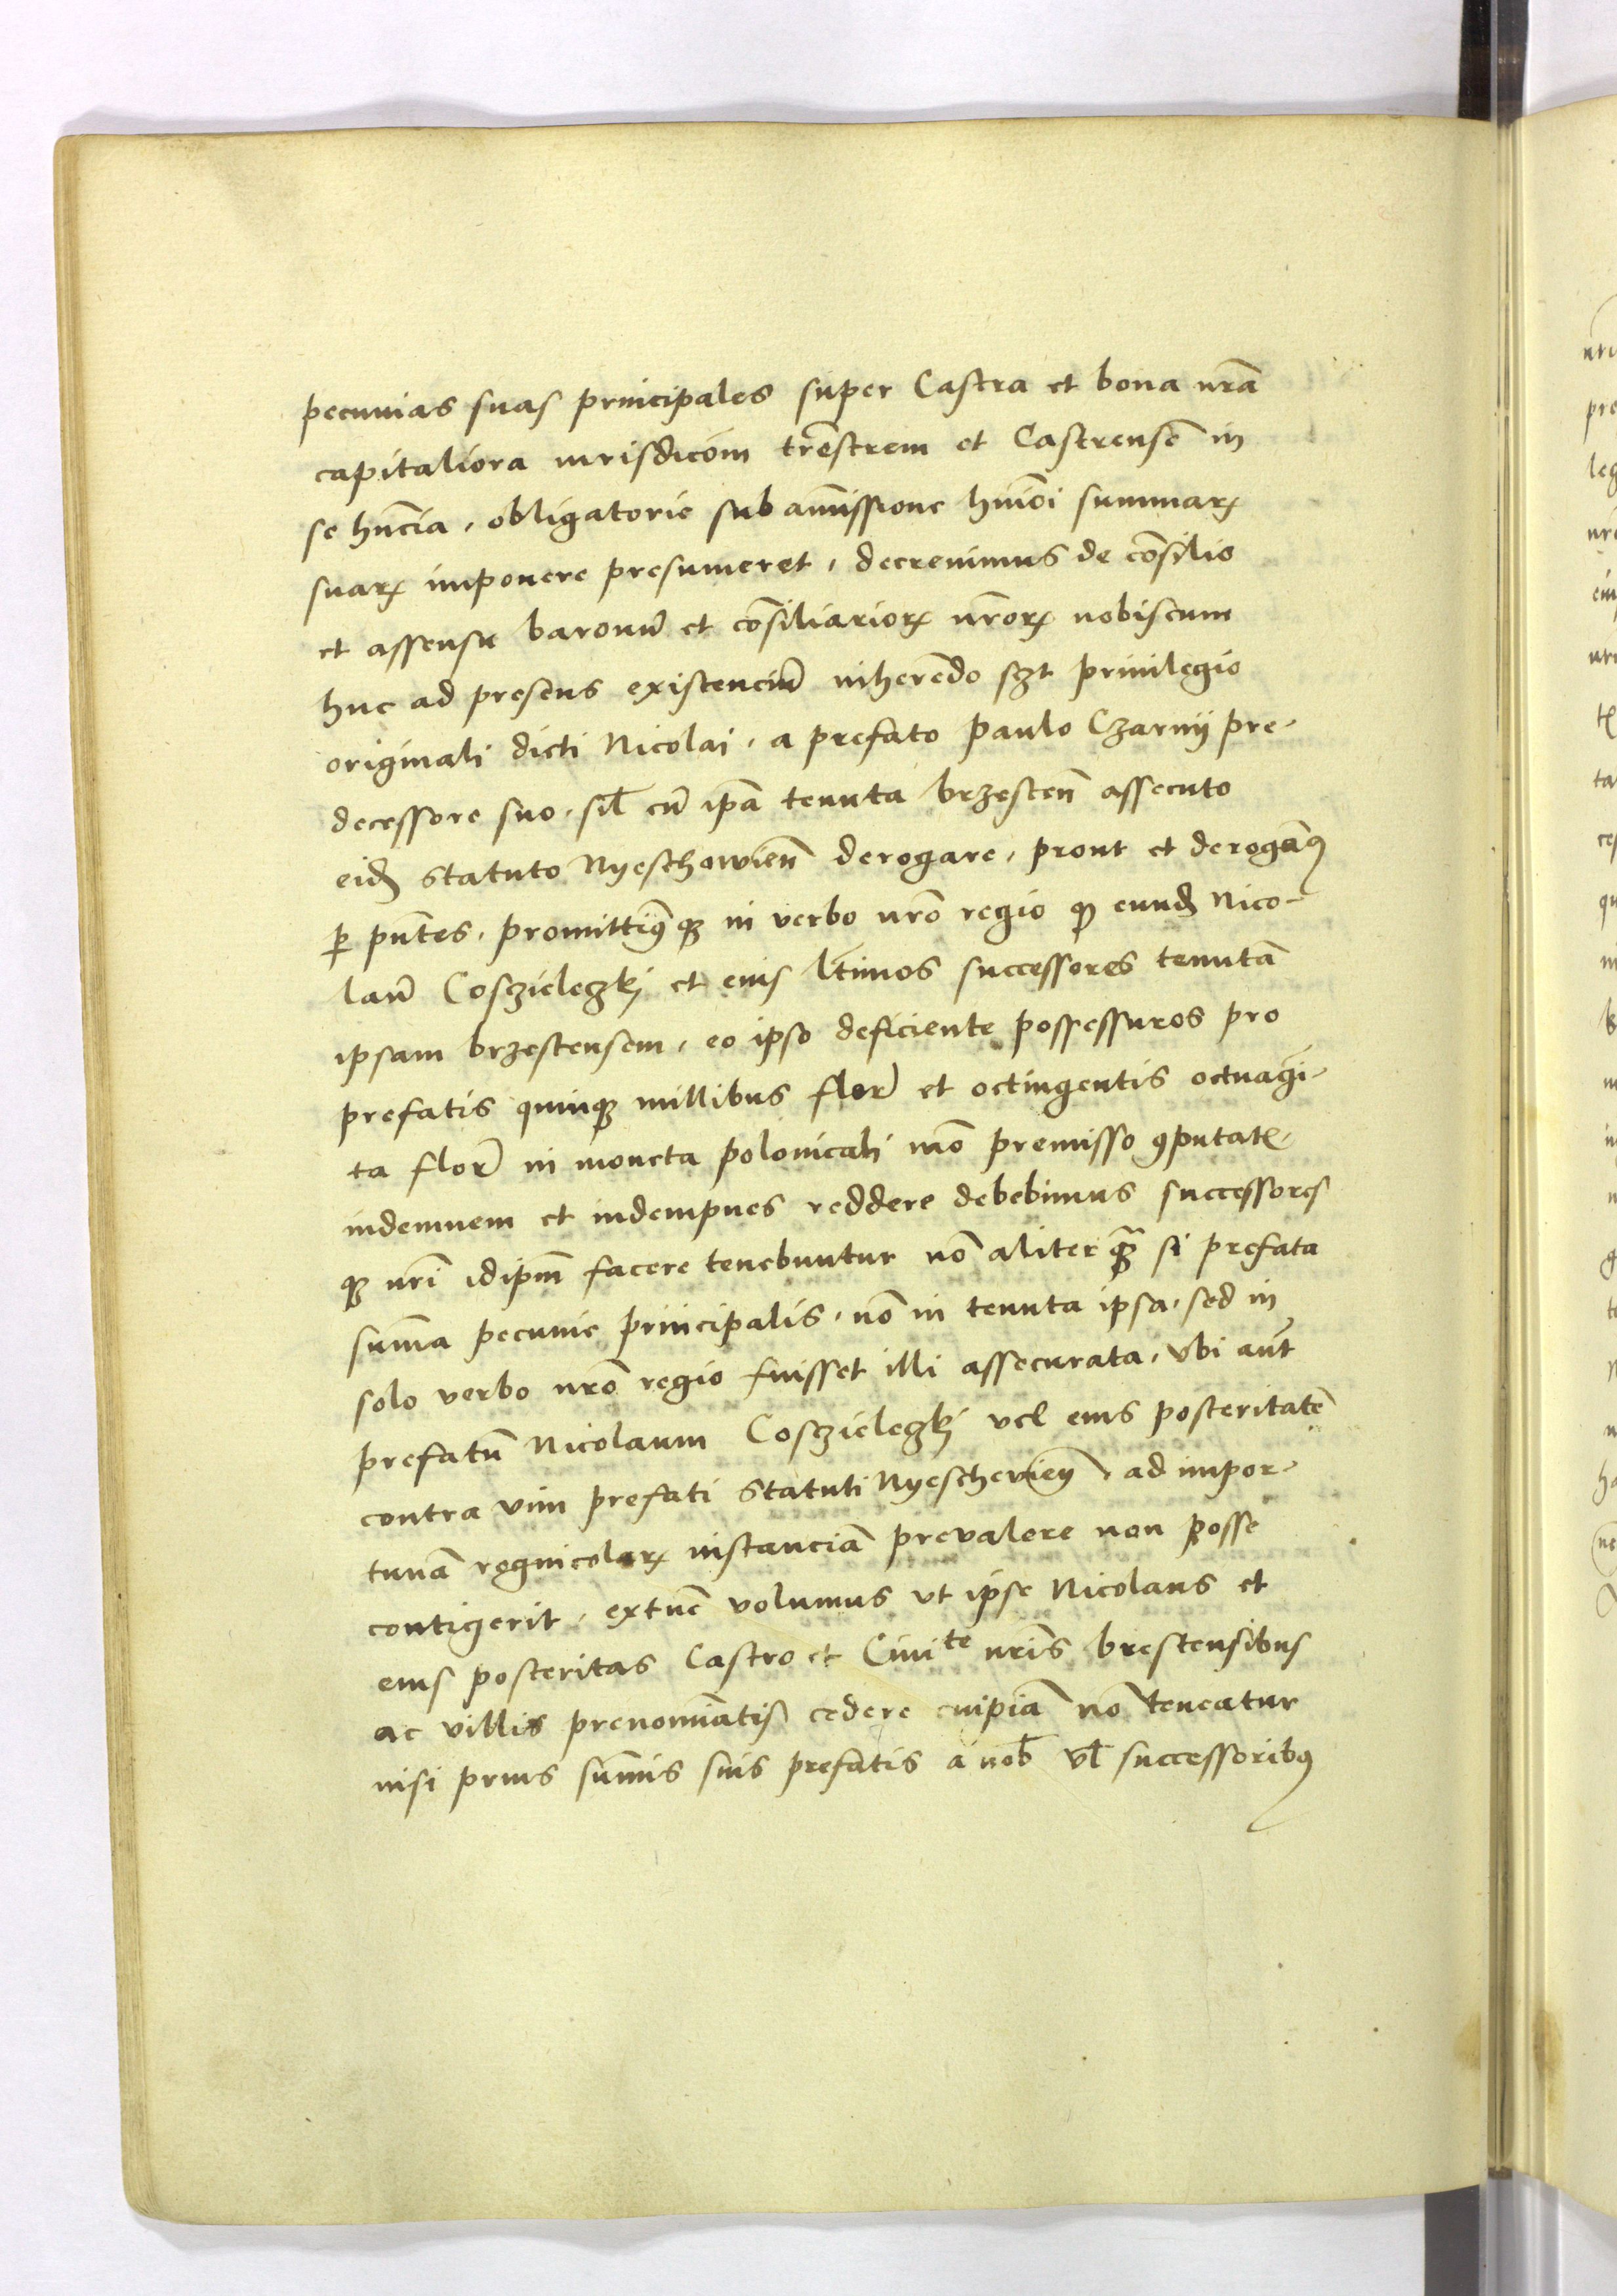 pecunias suas principales super Castra et bona nr̄a
capitaliora iurisdicōm tr̄estrem et Castrensē in
se hn̄cia, obligatorie sub am̄issione hm̄ōi summarꝝ
suarꝝ imponere presumeret, decreuimus de cōsilio
et assensu baronū et cōsiliariorꝝ nr̄orꝝ nobiscum
huc ad presens existenciū inherēdo szt priuilegio
originali dicti Nicolai, a prefato Paulo Czarnij pre-
decessore suo, sil̄ cū ip̄a tenuta brzesten̄ assecuto
eidꝫ statuto Nyeschowien̄ derogare, prout et derogam̄ꝰ
ꝑ pn̄tes, promittim̄ꝰqꝫ in verbo nr̄o regio ꝙ eundꝫ Nico-
laū Cosczielezkj et eius l̄timos successores tenutā
ipsam brzestensem, eo ipso deficiente possessuros pro
prefatis quinqꝫ millibus flor̄ et octingentis octuagī-
ta flor̄ in moneta polonicali mō premisso ꝯputatꝭ
indemnem et indempnes reddere debebimus successores
qꝫ nr̄i idip̄m facere tenebuntur nō aliter qꝫ̄ si prefata
sum̄a pecunie principalis, nō in tenuta ipsa, sed in
solo verbo nr̄o regio fuisset illi assecurata, vbi aūt
prefatū Nicolaum Cosczielezkj vel eius posteritatē
contra vim prefati statuti Nyeschevien̄, ad impor-
tunā regnicolarꝝ instanciā prevalere non posse
contigerit, extūc volumus vt ipse Nicolaus et
eius posteritas Castro et Ciuiᵗᵉ nr̄is brestensibus
ac villis prenomīatis cedere cuipiā nō teneatur
nisi prius sum̄is suis prefatis a nob̄ vl̄ successoribꝰ